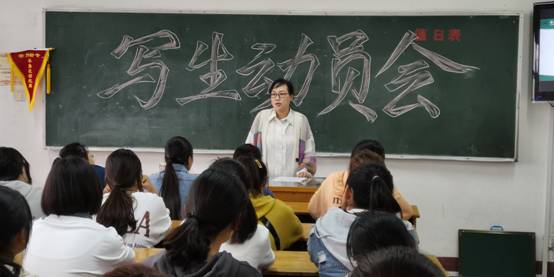 写生动员会
值日表